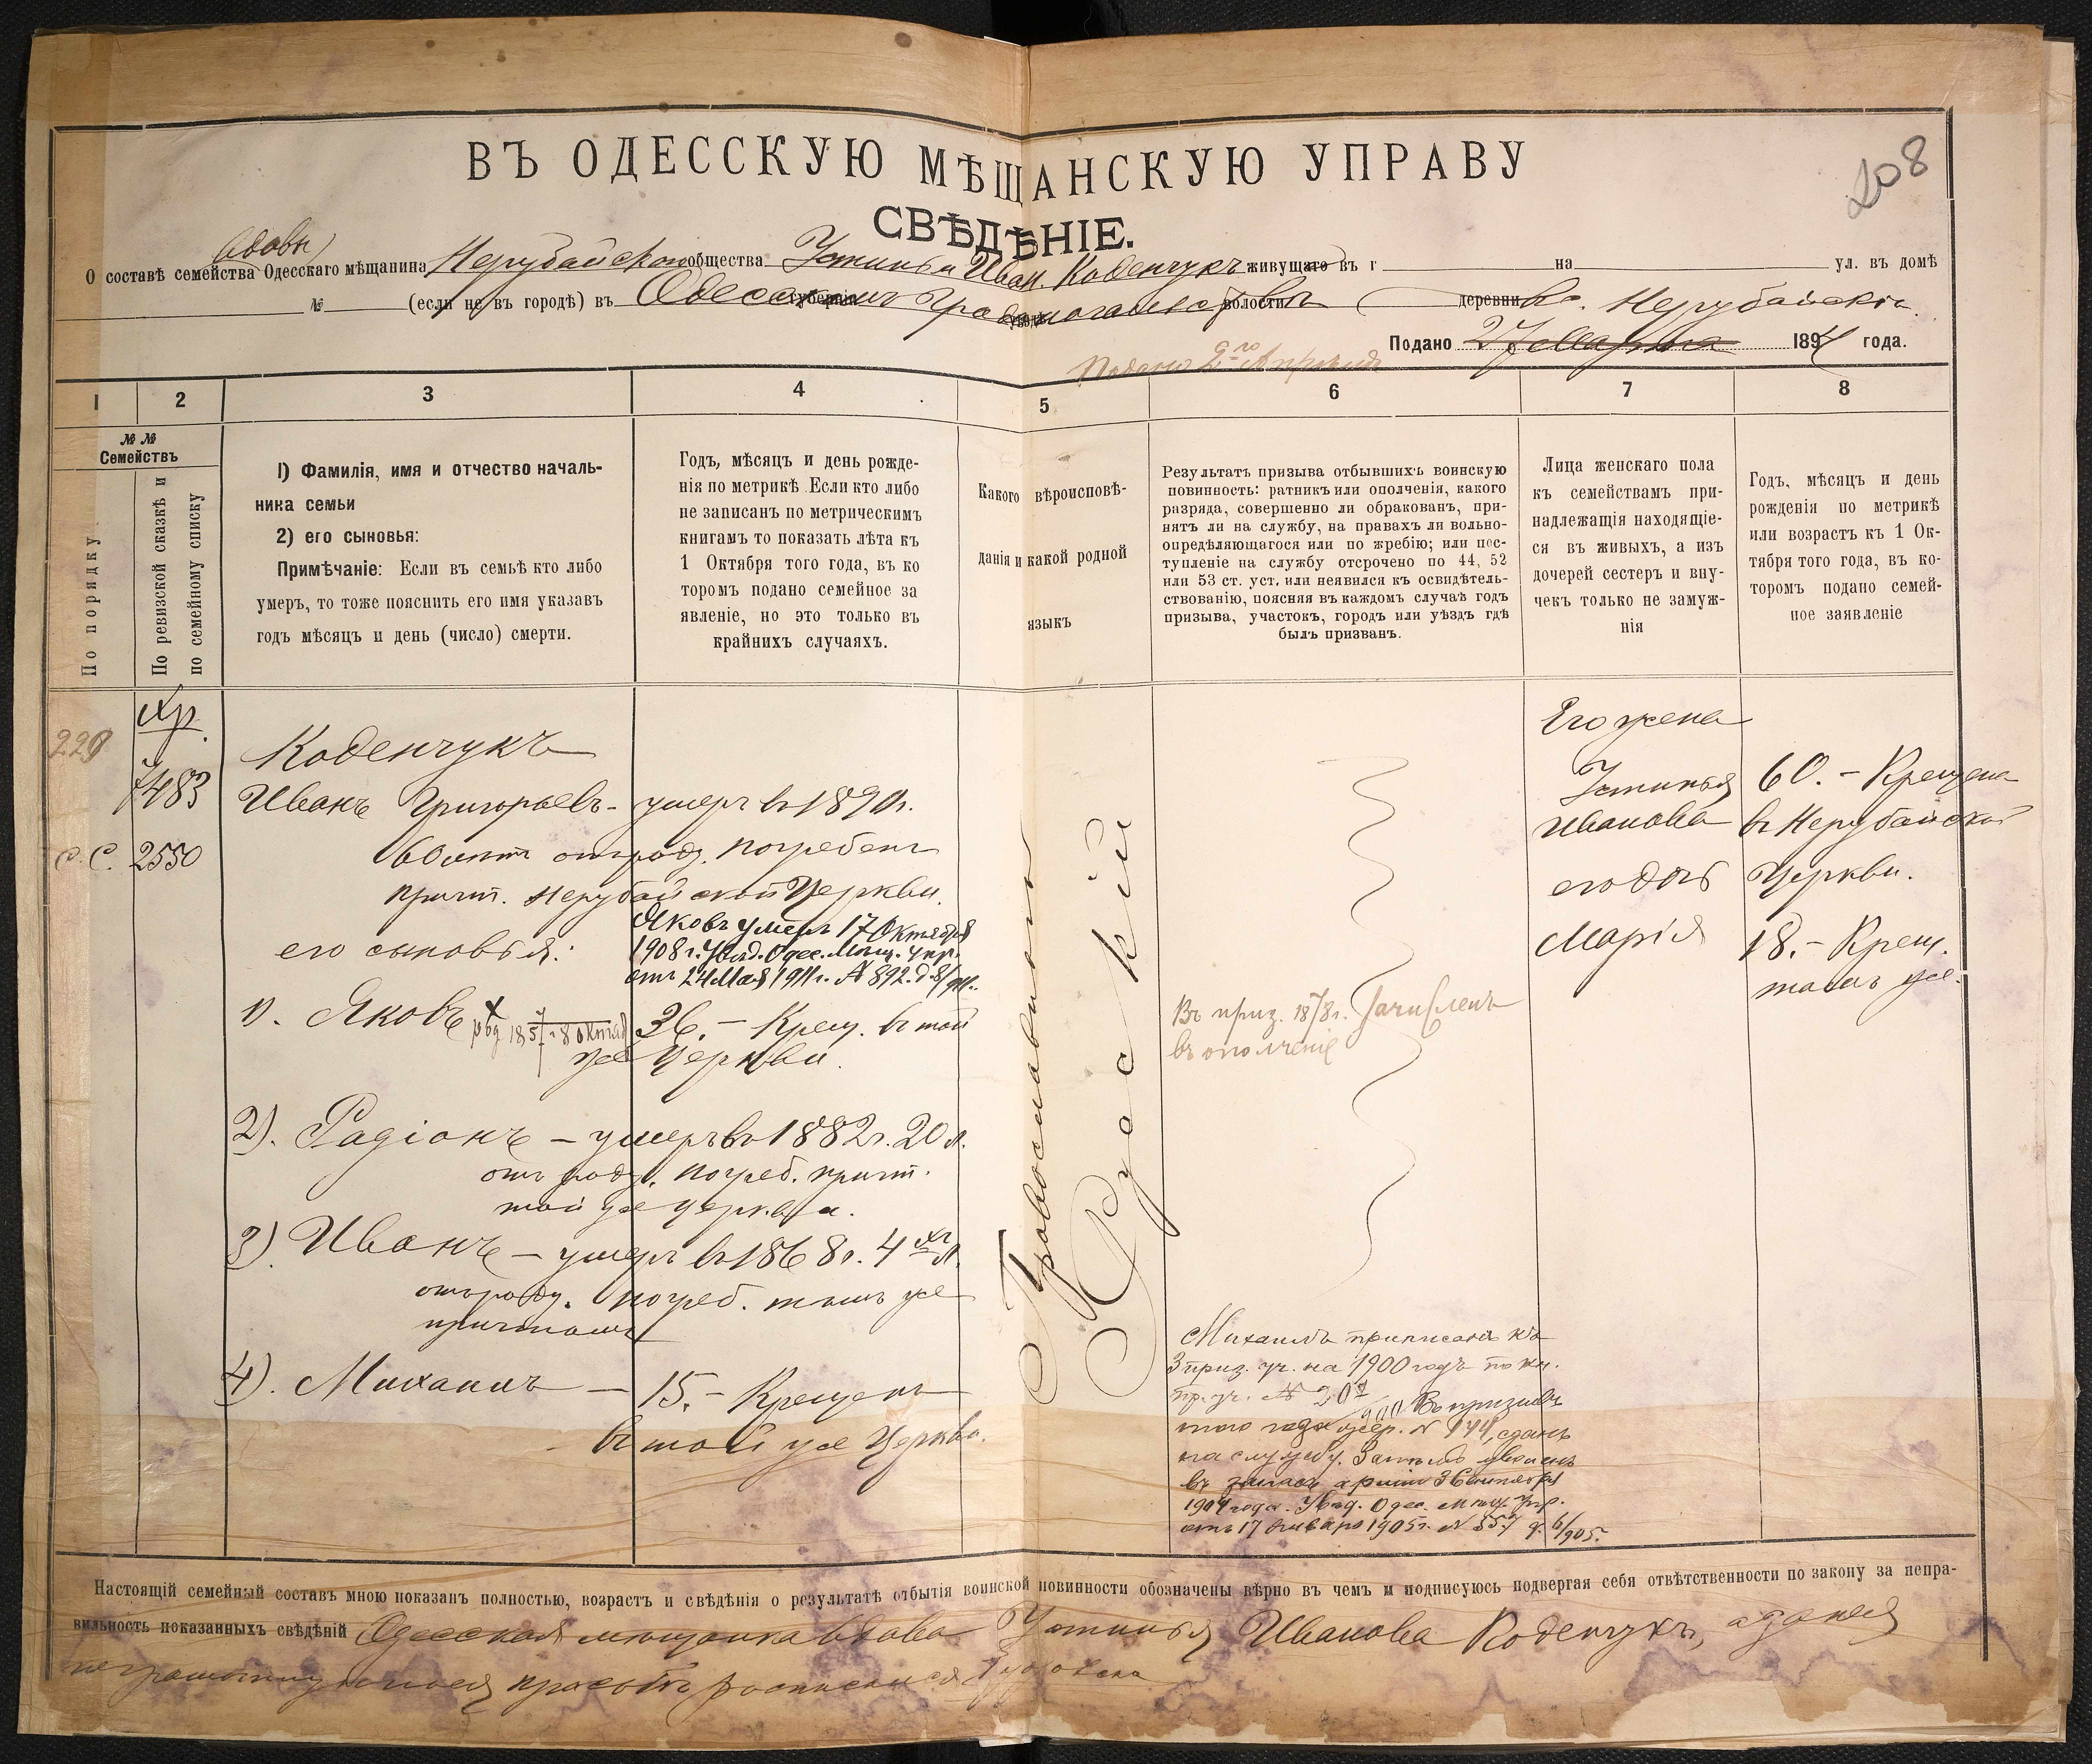 208
ВЪ ОДЕССКУЮ МѢЩАНСКУЮ УПРАВУ
СВѢДѢНІЕ.
вдовы
О составѣ семейства Одесскаго мѣщанина Нерубайскаго общества Устиньи Иван. Коденчукъ живущаго въ г на ул. въ домѣ
№ (если не въ городѣ) въ Одесскомъ губерніи Градоначальствѣ уѣзда волости деревни с. Нерубайскіи.
Подано 27 Марта 1894 года.
Подано 2го Апрѣля
1 2 3 4 5 6 7 8
№ №
Семействъ
По порядку.
По ревизской сказкѣ и
по семейному списку
1) Фамилія, имя и отчество началь-
ника семьи
2) его сыновья:
Примѣчаніе: Если въ семьѣ кто либо
умеръ, то тоже пояснить его имя указавъ
годъ мѣсяцъ и день (число) смерти.
Годъ, мѣсяцъ и день рожде-
нія по метрикѣ. Если кто либо
не записанъ по метрическимъ
книгамъ то показать лѣта къ
1 Октября того года, въ ко
торомъ подано семейное за
явленіе, но это только въ
крайнихъ случаяхъ.
Какого вѣроисповѣ-
данія и какой родной
языкъ
Результатъ призыва отбывшихъ воинскую
повинность: ратникъ или ополченія, какого
разряда, совершенно ли обракованъ, при-
нятъ ли на службу, на правахъ ли вольно-
опредѣляющагося или по жребію; или пос-
тупленіе на службу отсрочено по 44, 52
или 53 ст. уст. или неявился къ освидѣтель-
ствованію, поясняя въ каждомъ случаѣ годъ
призыва, участокъ, городъ или уѣздъ гдѣ
былъ призванъ.
Лица женскаго пола
къ семействамъ при-
надлежащія находящіе-
ся въ живыхъ, а изъ
дочерей сестеръ и вну-
чекъ только не замуж-
нія
Годъ, мѣсяцъ и день
рожденія по метрикѣ
или возрастъ къ 1 Ок-
тября того года, въ ко-
торомъ подано семей-
ное заявленіе
Хр.
229
7483
С. С. 2550
Коденчукъ
Иванъ Григорьевъ - умеръ въ 1890г.
60 лѣтъ отъ роду. погребенъ
причт. Нерубайской Церкви.
Яковъ умеръ 17 Октября
1908 г. Увѣд. Одес. Мѣщ. Упр.
отъ 24 Мая 1911г. № 892. д. 8/911.
его сыновья:
1). Яковъ 36. - Крещ. въ той
же Церкви.
2). Радіонъ - умеръ въ 1882г. 20 л.
отъ роду. погреб. причт.
той же церкви.
3) Иванъ - умеръ въ 1868г. 4хъ л.
отъ роду. погреб. тѣмъ же
причтомъ
4). Михаилъ - 15. - Крещенъ
въ той же Церкви.
Православнаго
Русскій
Въ приз. 1878г. Зачисленъ
въ ополченіе
Михаилъ приписанъ къ
3 приз. уч. на 1900 годъ по кн.
пр. уч. № 201/900 Въ призывъ
того года жер. № 144, сданъ
на службу. Затѣмъ уволенъ
въ запасъ арміи 3 Сентября
1904 года. Увѣд. Одес. Мѣщ. Упр.
отъ 17 Января 1905г. № 557 д. 6/905.
Его жена
Устинья 60. - Крещена
Иванова въ Нерубайской
его дочь Церкви.
Марія 18. - Крещ.
тамъ же.
Настоящій семейный составъ мною показанъ полностью, возрастъ и свѣдѣнія о результатѣ отбытія воинской повинности обозначены вѣрно въ чемъ и подписуюсь подвергая себя отвѣтственности по закону за непра-
вильность показанныхъ свѣдѣній Одесская мѣщанка вдова Устинья Иванова Коденчукъ, а за нея
неграмотную